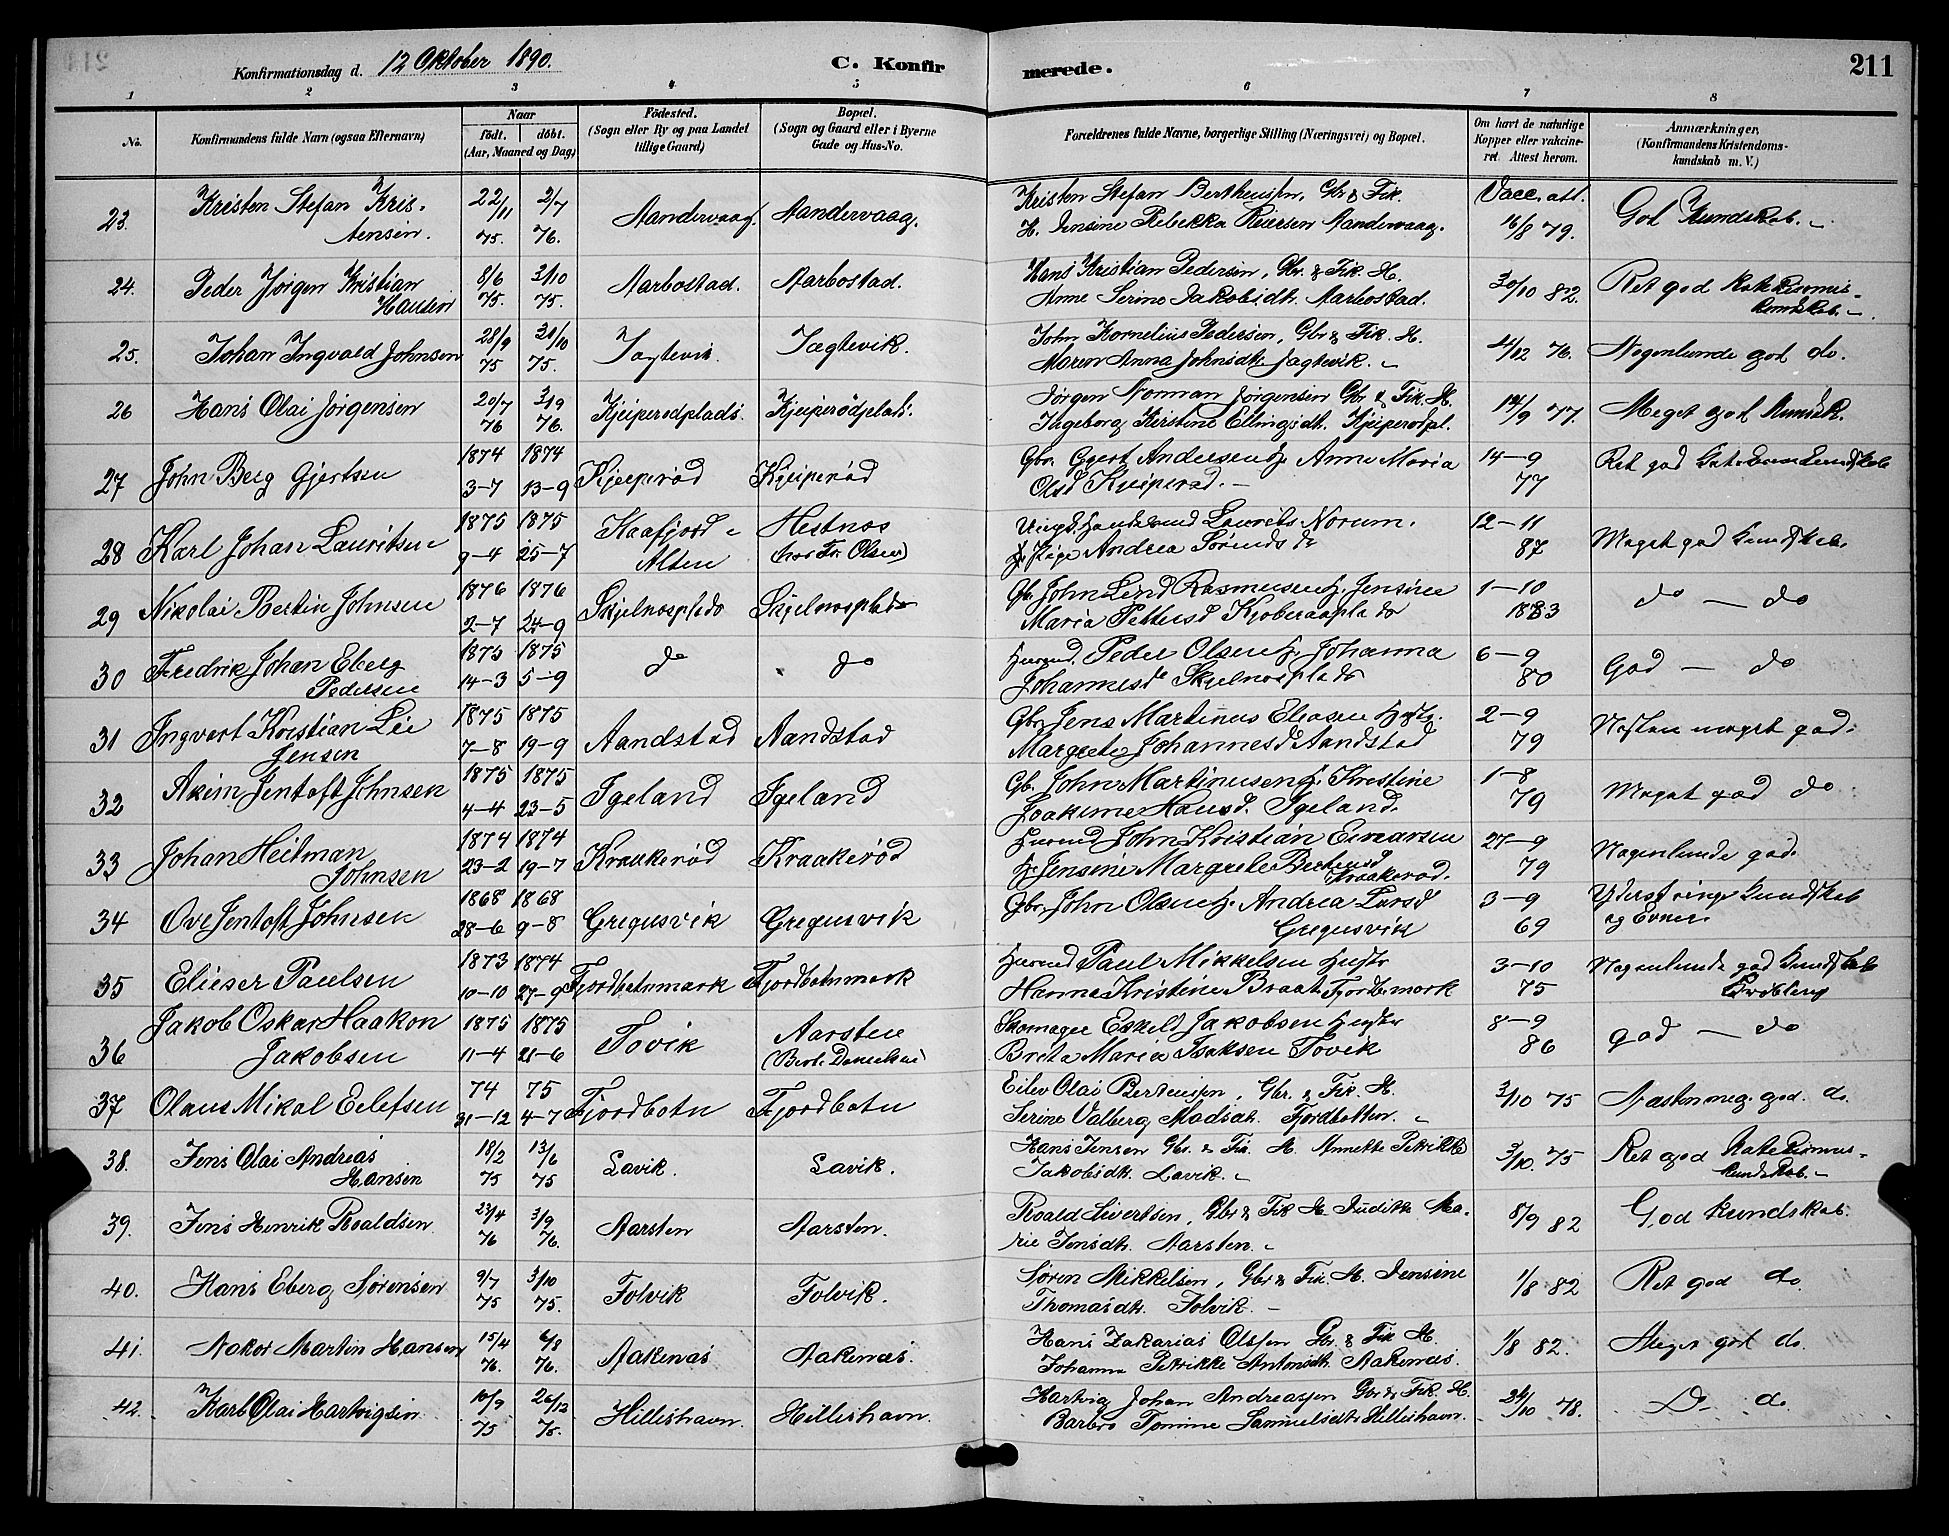 Konfirmationsdag d. 12 Oktober 1890. C. Konfir merede. 211
1 2 3 4 5 6 7 8
No. Konfirmandens fulde Navn (ogsaa Efternavn) Naar födt. döbt. (Aar, Maaned og Dag) Födested. (Sogn eller By og paa Landet tillige Gaard) Bopæl. (Sogn og Gaard eller i Byerne Gade og Hus-No. Forældrenes fulde Navne, borgerlige Stilling (Næringsvei) og Bopæl. Om havt de naturlige Kopper eller vakcineret. Attest herom. Anmærkninger, (Konfirmandens Kristendomskundskab m. V.)
23. Kristen Stefan Kris- 22/11 2/7 Aandervaag. Aandervaag. Kristen Stefan Bertheussen, Gbr & Fik. Vacc. att. God Kundskab.
tensen. 75. 76. H. Jensine Rebekka Petersen Aandervaag. 16/8 79.
24. Peder Jörgen Kristian 8/6 3/10 Aarbostad. Aarbostad. Hans Kristian Pedersen, Gbr. & Fik. H. 30/10 82. Ret god Katekismus-
Hansen 75. 75. Anne Serine Jakobsdtr. Aarbostad. kundskab.
25. Johan Ingvald Johnsen 28/9 31/10 Jagtevik. Jægtevik. John Kornelius Pedersen, Gbr & Fik. H. 4/12 76. Nogenlunde god do.
75 75. Maren Anna Johnsdtr. Jagtevik.
26 Hans Olai Jörgensen 20/7 3/9 Kjeiperödplads. Kjeiperödplads. Jörgen Norman Jörgensen Gbr & Fik. H. 14/9 77. Meget god Kundsk.
76 76. Ingeborg Kirstine Ellingsdtr. Kjeiperödpl.
27 John Berg Gjertsen 1874 1874 Kjeiperöd Kjeiperöd Gbr. Gjert Andersen H. Anne Maria 14-9 Ret god Kate kundskab
3-7 13-9 Olsd Kjeiperöd. 77
28 Karl Johan Lauritsen 1875 1875 Kaafjord Hestnes Laurits Norum. 12-11 Meget god kundskab.
9-4 25-7 Alten (hos Fr. Olsen) Pige Andrea Sörensdr 87
29 Nikolai Bertin Johnsen 1876 1876 Skjelnesplads Skjelnesplads Gb. John Lind Rasmussen H. Jensine 1-10 do - do
2-7 24-9 Maria Pettersd 1883
30 Fredrik Johan Eberg 1875 1875 do do Husmd. Peder Olsen H. Johanna 6-9 God - do
Pedersen 14-3 5-9 Johannesd Skjelnesplads 80
31 Ingvert Kristian Lei 1875 1875 Aandstad Aandstad Gbr. Jens Martinus Eliasen Hustr. 2-9 Næsten meget god.
Jensen 7-8 19-9 Margrete Johannesd Aandstad 79
32 Akim Jentoft Johnsen 1875 1875 Igeland Igeland Gb. John Martinusen H. Kristine 1-8 Meget god do
4-4 23-5 Joakime Hansd. Igeland. 79
33 Johan Heitman 1874 1874 Kraakeröd Kraakeröd Husmd John Kristian Einarsen 27-9 Nogenlunde god.
Johnsen 23-2 19-7 H. Jensine Margrete Berteusd Kraakeröd. 79
34 Ove Jentoft Johnsen 1868 1868 Gregusvik Gregusvik Gbr. John Olsen H. Andrea Larsd 3-9 Yderst ringe kundskab
28-6 9-8 Gregusvik 69 og Evner.
35 Elieser Paulsen 1873 1874 Fjordbotnmark Fjordbotnmark Husmd Paul Mikkelsen Hustr 3-10 Nogenlunde god Kundskab
10-10 27-9 Hanna Kristine Braat Fjordb.mark 75
36 Jakob Oskar Haakon 1875 1875 Tovik Aarsten Skomager Eskild Jakobsen Hustr 8-9 god - do
Jakobsen 11-4 21-6 (Bert. Danielsen) Breta Maria Isaksen Tovik 86
37 Olaus Mikal Eilefsen 74 75 Fjordbotn Fjordbotn Eilev Olai Berteussen, Gbr. & Fik. H. 3/10 75 Næsten meg. god do.
31-12 4-7 Serine Valberg Madsdt. Fjordbotten.
38. Jens Olai Andreas 18/2 13/6 Lavik. Lavik. Hans Jensen Gbr. & Fik. H. Annette Petrikke 3/10. 75 Ret god Katekismus-
Hansen 75 75 Jakobsdt. Lavik. kundskab.
39. Jens Henrik Roaldsen 23/4 3/9 Aarsten Aarsten. Roald Sivertsen, Gbr & Fik H. Judith Ma- 8/9 82 God kundskab.
76 76. rie Jensdtr. Aarsten.
40. Hans Eberg Sörensen 9/7 3/10 Folvik Folvik. Sören Mikkelsen, Gbr & Fik. H. Jensine 1/8 82 Ret god do.
75 75. Thomasdtr. Folvik.
41. Nakor Martin Hansen 15/4 6/8 Aakenes Aakenæs. Hans Zakarias Olsen Gbr. & Fik H. 1/8 82. Meget god do.
76. 76. Johanna Petrikke Antonsdt. Aakenæs.
42. Karl Olai Hartvigsen 10/9 26/12 Hilleshavn. Hilleshavn. Hartvig Johan Andreassen Gbr & Fik. H. 24/10 78. Do do.
75 75. Barbro Tomine Samuelsdt Hilleshavn.